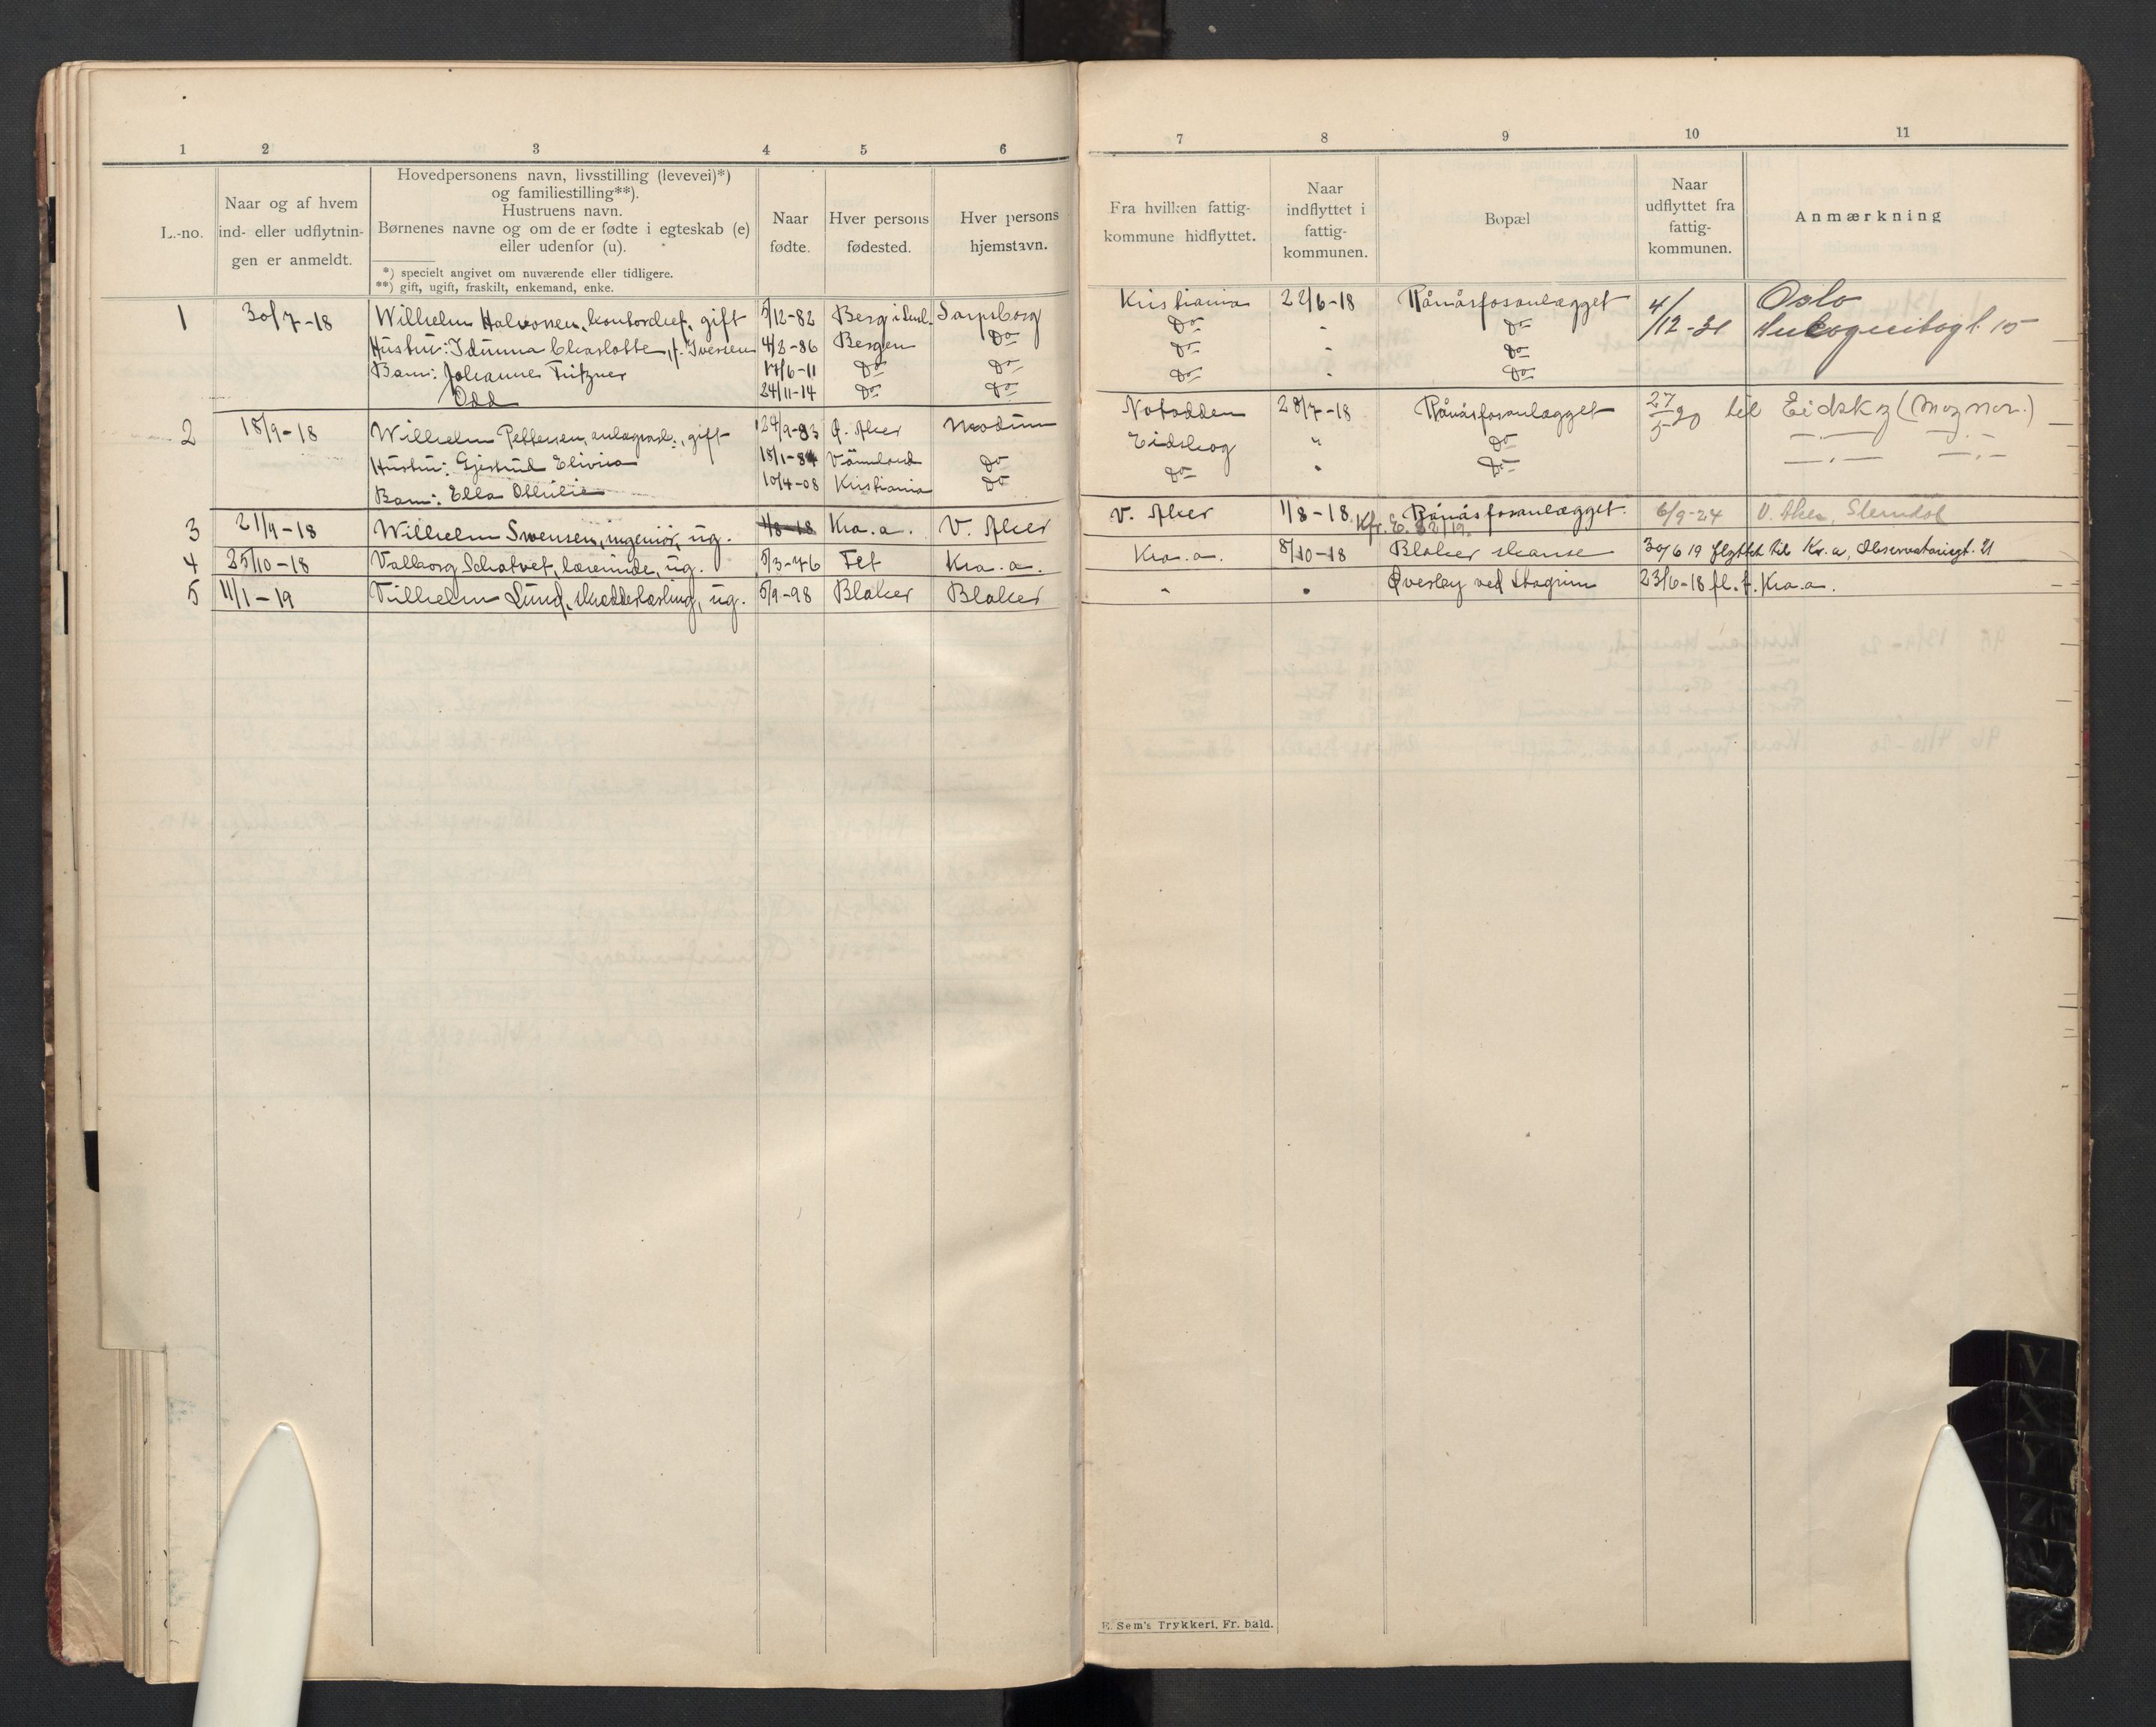 1 2 3 4 5 6
L.-no.
Naar og af hvem
ind- eller udflytnin-
gen er anmeldt.
Hovedpersonens navn, livsstilling (levevei)*)
og familiestilling**).
Hustruens navn.
Børnenes navne og om de er fødte i egteskab (e)
eller udenfor (u).
*) specielt angivet om nuværende eller tidligere.
**) gift, ugift, fraskilt, enkemand, enke.
Naar
fødte.
Hver persons
fødested.
Hver persons
hjemstavn.
1 30/7-18 Wilhelm Halvorsen, kontorchef, gift 5/12-82 Berg i Sml. Sarpsborg
Hustru: Idunna Charlotte, f. Iversen 4/8-86 Bergen Do
Barn: Johannes Fritzner 17/6-11 Do Do
Odd 24/11-14 Do Do
2 18/9-18 Wilhelm Pettersen, anlægsarb., gift 24/9-83 Ø. Aker Modum
Hustru: Gjertrud Elivira 18/1-84 Värmland Do
Barn: Ella Othilie 10/4-08 Kristiania Do
3 21/9-18 Wilhelm Swensen, ingeniør, ug. 1/8-18 Kra.a. V. Aker
4 25/10-18 Valborg Schatvet, lærerinde, ug. 5/3-76 Fet Kra.a.
5 11/1-19 Vilhelm Lund, skrædderlærling, ug. 5/9-98 Blaker Blaker
7 8 9 10 11
Fra hvilken fattig-
kommune hidflyttet.
Naar
indflyttet i
fattig-
kommunen.
Bopæl
Naar
udflyttet fra
fattig-
kommunen.
Anmærkning
Kristiania 22/6-18 Rånåsfosanlægget 4/12-31 Oslo
Do " Do 15
Do " Do
Do " Do
Notodden 28/7-18 Rånåsfosanlægget 27/5 20 til Eidskog (Magnor.)
Eidskog " Do
Do " Do
V. Aker 1/8-18 Rånåsfosanlægget. 6/9-24 V. Aker, Slemdal
Kfr. E. 82/19.
Kra.a. 8/10-18 Blaker skanse 30/6 19 flyttet til Kr.a, Observatoriegt. 21
" " Øverby ved Hagrim 23/6-18 fl. t. Kra.a.
E. Sem's Trykkeri, Fr. hald.
V
X
Y
Z